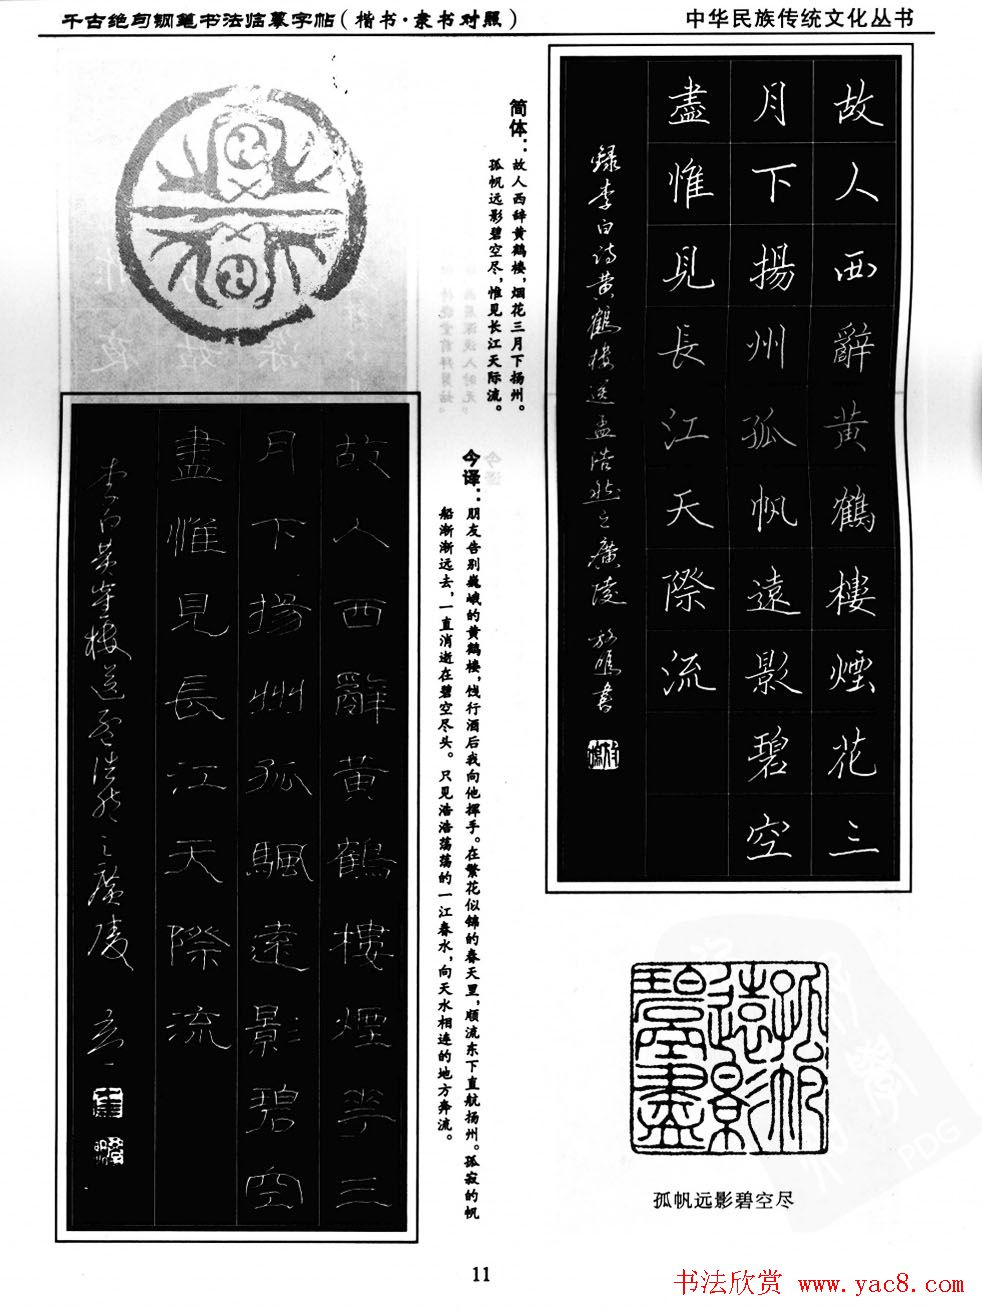 千古绝句钢笔书法临摹字帖（楷书·隶书对照）
中华民族传统文化丛书
故人西辭黄鶴樓煙花三
月下揚州孤帆遠影碧空
盡惟見長江天際流
録李白詩黄鶴樓送孟浩然之廣陵
简体：故人西辞黄鹤楼，烟花三月下扬州。
孤帆远影碧空尽，惟见长江天际流。
今译：朋友告别巍峨的黄鹤楼，饯行酒后我向他挥手。在繁花似锦的春天里，顺流东下直航扬州。孤寂的帆
船渐渐远去，一直消逝在碧空尽头。只见浩浩荡荡的一江春水，向天水相连的地方奔流。
故人西辭黄鶴樓煙華三
月下揚州孤颿遠影碧空
盡惟見長江天際流
李白黄鶴樓送孟浩然之廣陵
孤帆
遠影
碧空盡
孤帆远影碧空尽
11
书法欣赏 www.yac8.com